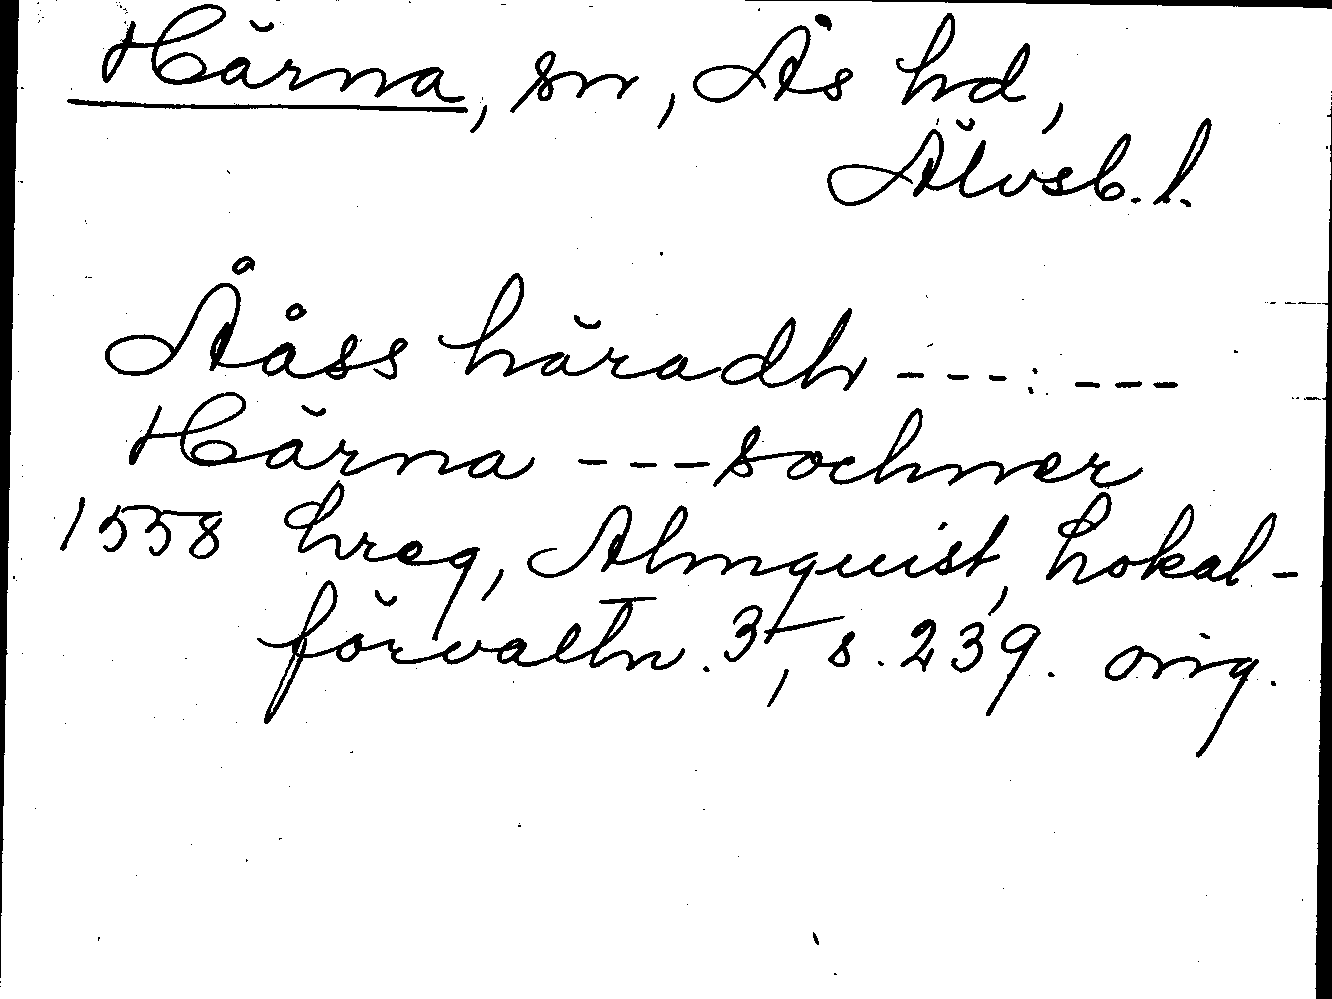 Härna, sn, Ås hd,
Älvsb. l.
Ååss häradh ---:---
Härna --- sochner
1558 hreg, Almquist, Lokal-
förvaltn. 3, s. 239. orig.